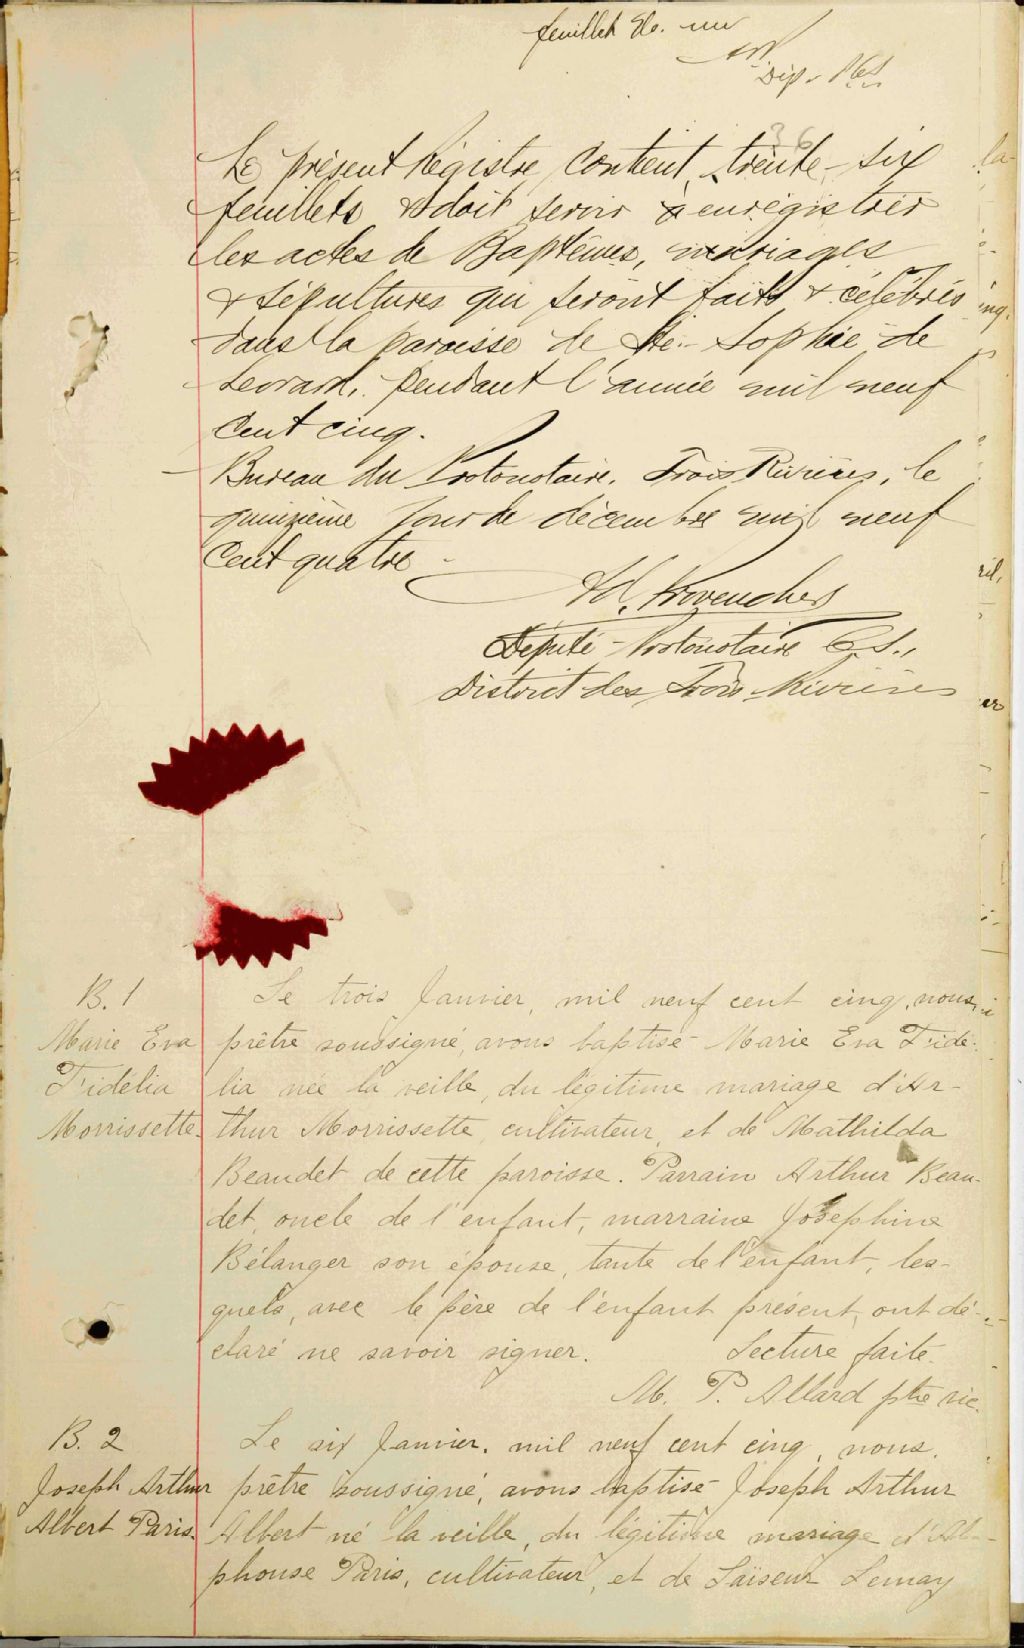 feuillet No. un
Dép. P.C.S.
36
Le présent Régistre contient trente-six
feuillets & doit servir à enrégistrer
les actes de Baptêmes, mariages
& sépultures qui seront faits & célébrés
dans la paroisse de Ste. Sophie de
Levrard, pendant l'année mil neuf
cent cinq.
Bureau du Protonotaire, Trois Rivières, le
quinzième jour de décembre mil neuf
cent quatre
Ad. Provencher
Député-Protonotaire C.S.,
District des Trois Rivières
B. 1
Marie Eva
Fidélia
Morrissette.
Le trois Janvier, mil neuf cent cinq, nous,
prêtre soussigné, avons baptisé Marie Eva Fidé-
lia née la veille, du légitime mariage d'Ar-
thur Morrissette, cultivateur, et de Mathilda
Beaudet de cette paroisse. Parrain Arthur Beau-
det, oncle de l'enfant, marraine Josephine
Bélanger son épouse, tante de l'enfant, les-
quels, avec le père de l'enfant présent, ont dé-
claré ne savoir signer. Lecture faite.
M. P. Allard ptre vic.
B. 2
Joseph Arthur
Albert Paris.
Le six Janvier, mil neuf cent cinq, nous,
prêtre soussigné, avons baptisé Joseph Arthur
Albert né la veille, du légitime mariage d'Al-
phonse Paris, cultivateur, et de Lemay